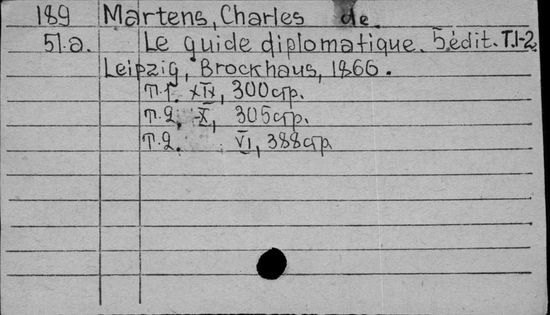 189 Martens, Charles de.
51.a. Le guide diplomatique. 5 édit. T.1-2
Leipzig, Brockhaus, 1866.
Т.1. XIX, 300 стр.
Т.2. X, 305 стр.
Т.2. VI, 388 стр